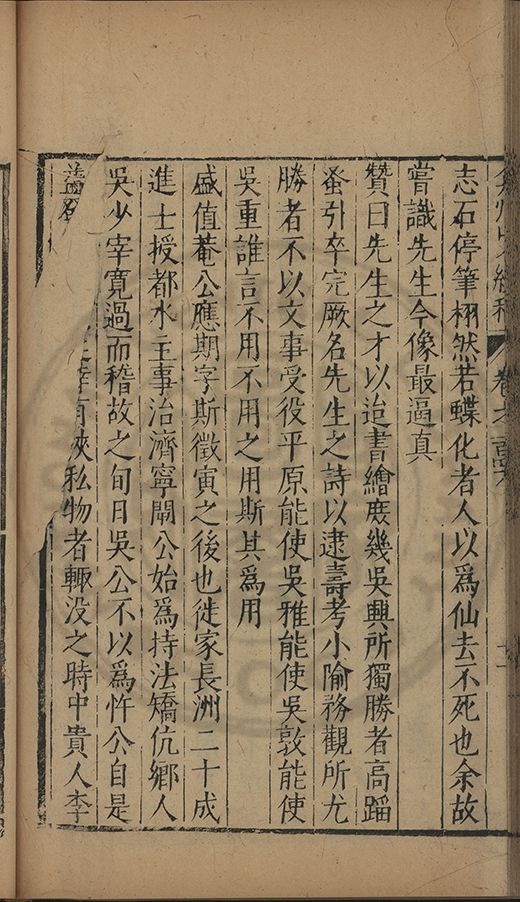 志石停筆栩然若蝶化者人以爲仙去不死也余故
嘗識先生今像最逼真
贊曰先生之才以迨書繪庶幾吳興所獨勝者高蹈
蚤引卒完厥名先生之詩以逮壽考小隃務觀所尤
勝者不以文事受役平原能使吳雅能使吳敦能使
吳重誰言不用不用之用斯其爲用
盛值菴公應期字斯徵寅之後也徙家長洲二十成
進士授都水主事治濟寧閘公始爲持法矯伉鄉人
吳少宰寬過而稽故之旬日吳公不以爲忤公自是
益 有挾私物者輙没之時中貴人李